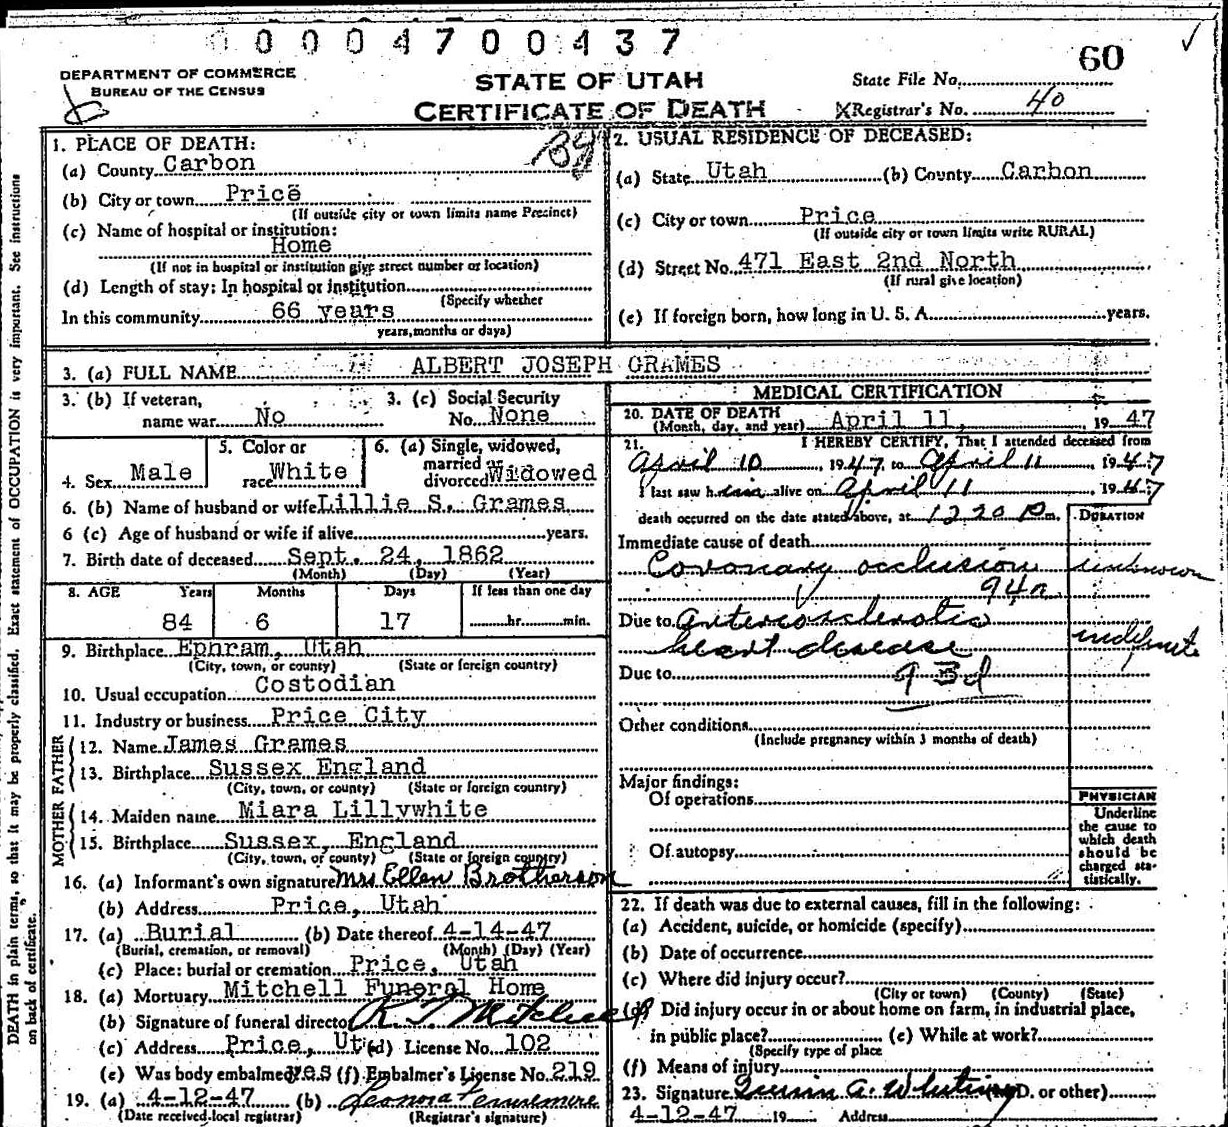 0004700437
60
DEPARTMENT OF COMMERCE
BUREAU OF THE CENSUS
STATE OF UTAH
CERTIFICATE OF DEATH
State File No.
Registrar's No. 40
1. PLACE OF DEATH:
(a) County Carbon
(b) City or town Price
(If outside city or town limits name Precinct)
(c) Name of hospital or institution:
Home
(If not in hospital or institution give street number or location)
(d) Length of stay: In hospital or institution
(Specify whether
In this community 66 years
years, months or days)
2. USUAL RESIDENCE OF DECEASED:
(a) State Utah (b) County Carbon
(c) City or town Price
(If outside city or town limits write RURAL)
(d) Street No. 471 East 2nd North
(If rural give location)
(e) If foreign born, how long in U. S. A. years.
3. (a) FULL NAME ALBERT JOSEPH GRAMES
3. (b) If veteran,
name war No
3. (c) Social Security
No. None
4. Sex Male
5. Color or
race White
6. (a) Single, widowed,
married or
divorced Widowed
6. (b) Name of husband or wife Lillie S. Grames
6 (c) Age of husband or wife if alive years.
7. Birth date of deceased Sept. 24, 1862
(Month) (Day) (Year)
8. AGE Years Months Days If less than one day
84 6 17 hr. min.
9. Birthplace Ephram, Utah
(City, town, or county) (State or foreign country)
10. Usual occupation Costodian
11. Industry or business Price City
FATHER
12. Name James Grames
13. Birthplace Sussex England
(City, town, or county) (State or foreign country)
MOTHER
14. Maiden name Miara Lillywhite
15. Birthplace Sussex, England
(City, town, or county) (State or foreign country)
16. (a) Informant's own signature Mrs Ellen Brotherson
(b) Address Price, Utah
17. (a) Burial (b) Date thereof 4-14-47
(Burial, cremation, or removal) (Month) (Day) (Year)
(c) Place: burial or cremation Price, Utah
18. (a) Mortuary Mitchell Funeral Home
(b) Signature of funeral director
(c) Address Price, Ut (d) License No. 102
(e) Was body embalmed yes (f) Embalmer's License No. 219
19. (a) 4-12-47 (b) Leonora
(Date received local registrar) (Registrar's signature)
MEDICAL CERTIFICATION
20. DATE OF DEATH
(Month, day, and year) April 11, 19 47
21. I HEREBY CERTIFY, That I attended deceased from
April 10, 1947, to April 11 1947
I last saw him alive on April 11, 1947
death occurred on the date stated above, at 12 20 P m.
DURATION
Immediate cause of death
Coronary occlusion unknown
94a
Due to Arteriosclerotic
heart disease indefinite
Due to 93d
Other conditions
(Include pregnancy within 3 months of death)
Major findings:
Of operations
Of autopsy
PHYSICIAN
Underline
the cause to
which death
should be
charged sta-
tistically.
22. If death was due to external causes, fill in the following:
(a) Accident, suicide, or homicide (specify)
(b) Date of occurrence
(c) Where did injury occur?
(City or town) (County) (State)
(d) Did injury occur in or about home on farm, in industrial place,
in public place? (e) While at work?
(Specify type of place
(f) Means of injury
23. Signature (M.D. or other)
4-12-47 19 Address
DEATH in plain terms, so that it may be properly classified. Exact statement of OCCUPATION is very important. See instructions
on back of certificate.